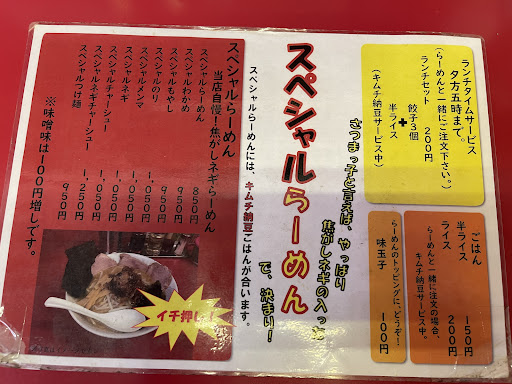 ランチタイムサービス
夕方五時まで。
(らーめんと一緒にご注文下さい。)
ランチセット 200円
餃子3個
+
半ライス
(キムチ納豆サービス中)
ごはん
半ライス 150円
ライス 200円
らーめんと一緒に注文の場合、
キムチ納豆サービス中。
らーめんのトッピングに、どうぞ!
味玉子 100円
さつまっ子と言えば、やっぱり
焦がしネギの入った
スペシャルらーめん
で、決まり!
スペシャルらーめんには、キムチ納豆ごはんが合います。
スペシャルらーめん
当店自慢!焦がしネギらーめん
スペシャルらーめん 850円
スペシャルわかめ 950円
スペシャルもやし 950円
スペシャルのり 950円
スペシャルメンマ 1,050円
スペシャルネギ 1,050円
スペシャルチャーシュー 1,050円
スペシャルネギチャーシュー 1,250円
スペシャルつけ麺 950円
※味噌味は100円増しです。
イチ押し!